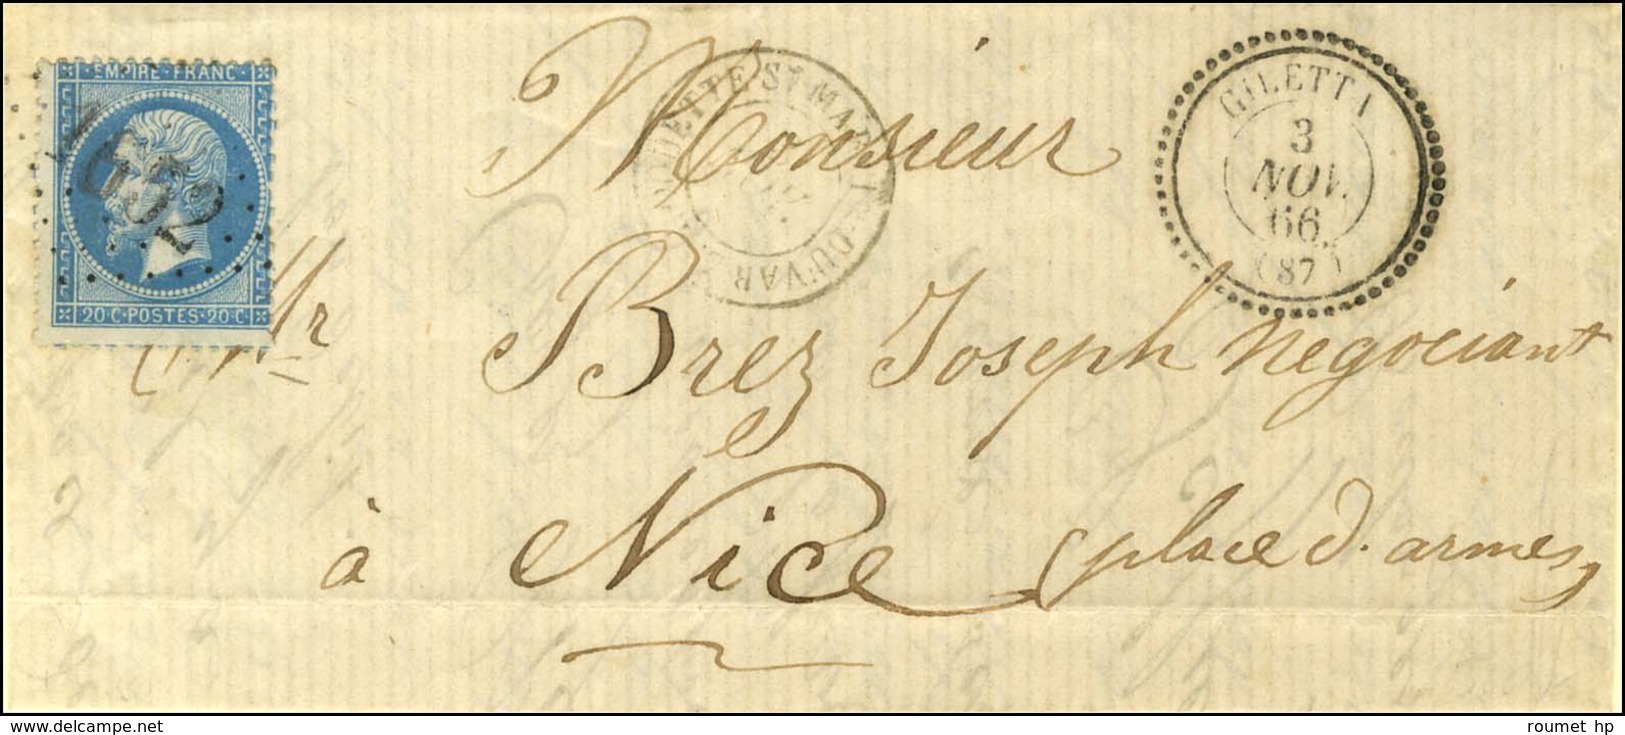 EMPIRE FRANC
4652
20 C POSTES 20 C
DETTE ST MARTIN-DU-VAR
GILETTA
3
NOV.
66
(87)
Monsieur
Brez Joseph negociant
à Nice place d'armes
roumet hp
www.delcampe.net